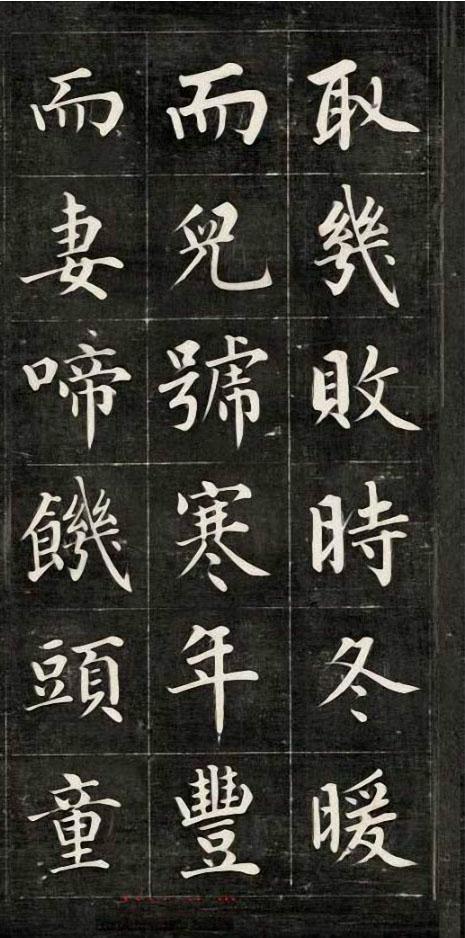 取幾敗時冬暖
而兒號寒年豐
而妻啼饑頭童